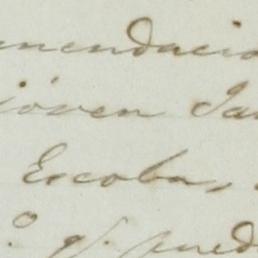 mendacio
jóven Ja
Escobar,
q. pued